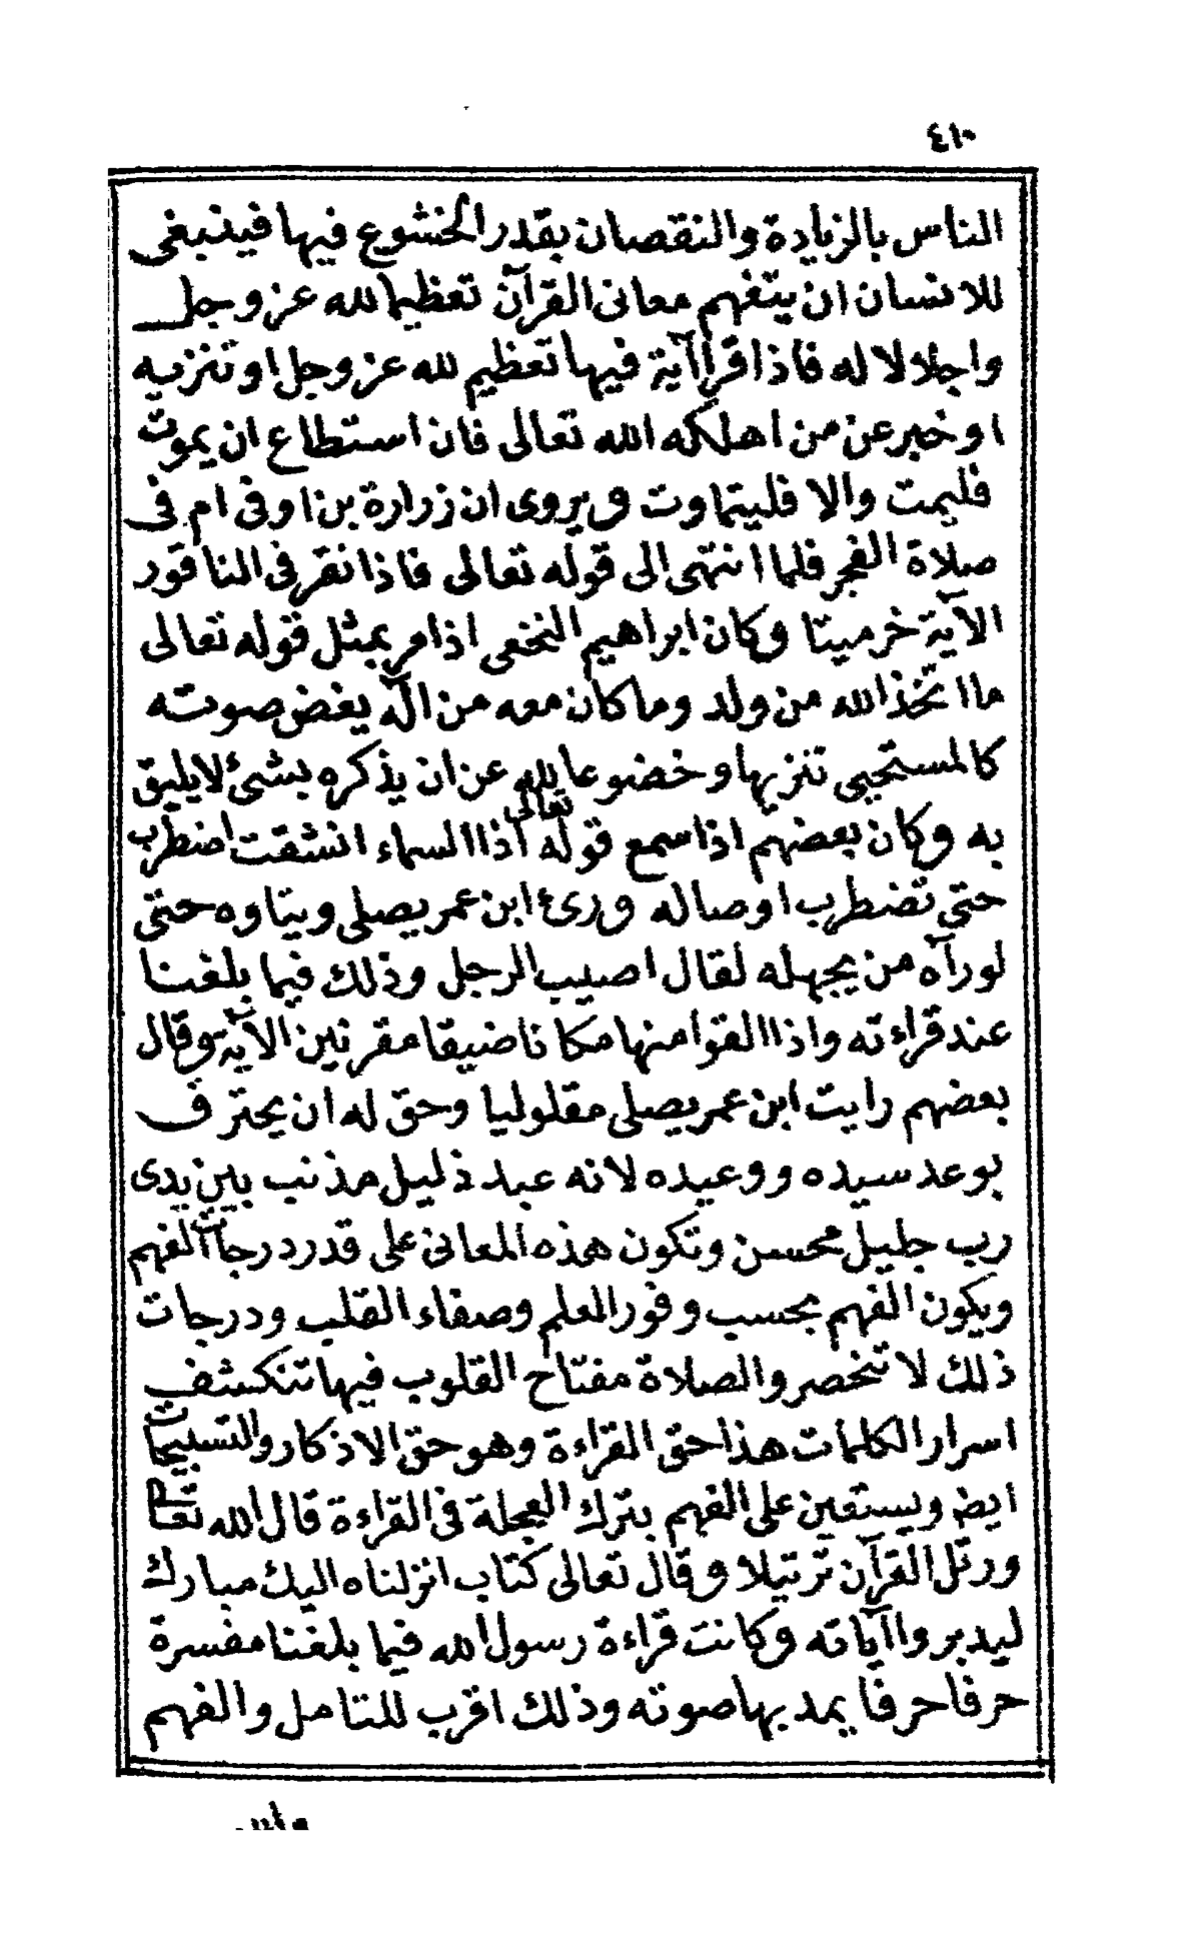 ٤١٠
الناس بالزيادة والنقصان بقدر الخشوع فيها فينبغى
للانسان ان يتفهم معانى القرآن تعظيما لله عز وجل
واجلالا له فاذا قرا آية فيها تعظيم لله عز وجل او تنزيه
او خبر عن من اهلكه الله تعالى فان استطاع ان يموت
فليمت والا فليتماوت ويروى ان زرارة بن اوفى ام فى
صلاة الفجر فلما انتهى الى قوله تعالى فاذا نقر فى الناقور
الآية خر ميتا وكان ابراهيم النخعى اذا مر بمثل قوله تعالى
ما اتخذ الله من ولد وما كان معه من اله يغض صوته
كالمستحيى تنزيها وخضوعا لله عن ان يذكره بشئ لا يليق
به وكان بعضهم اذا سمع قوله تعالى اذا السماء انشقت اضطرب
حتى تضطرب اوصاله ورئ ابن عمر يصلى ويتاوه حتى
لو رآه من يجهله لقال اصيب الرجل وذلك فيما بلغنا
عند قراءته واذا القوا منها مكانا ضيقا مقرنين الآية وقال
بعضهم رايت ابن عمر يصلى مقلوليا وحق له ان يحترف
بوعد سيده ووعيده لانه عبد ذليل مذنب بين يدى
رب جليل محسن وتكون هذه المعانى على قدر درجات الفهم
ويكون الفهم بحسب وفور العلم وصفاء القلب ودرجات
ذلك لا تنحصر والصلاة مفتاح القلوب فيها تنكشف
اسرار الكلمات هذا حق القراءة وهو حق الاذكار والتسبيحات
ايض ويستعين على الفهم بترك العجلة فى القراءة قال الله تعالى
ورتل القرآن ترتيلا وقال تعالى كتاب انزلناه اليك مبارك
ليدبروا آياته وكانت قراءة رسول الله فيما بلغنا مفسرة
حرفا حرفا يمد بها صوته وذلك اقرب للتامل والفهم